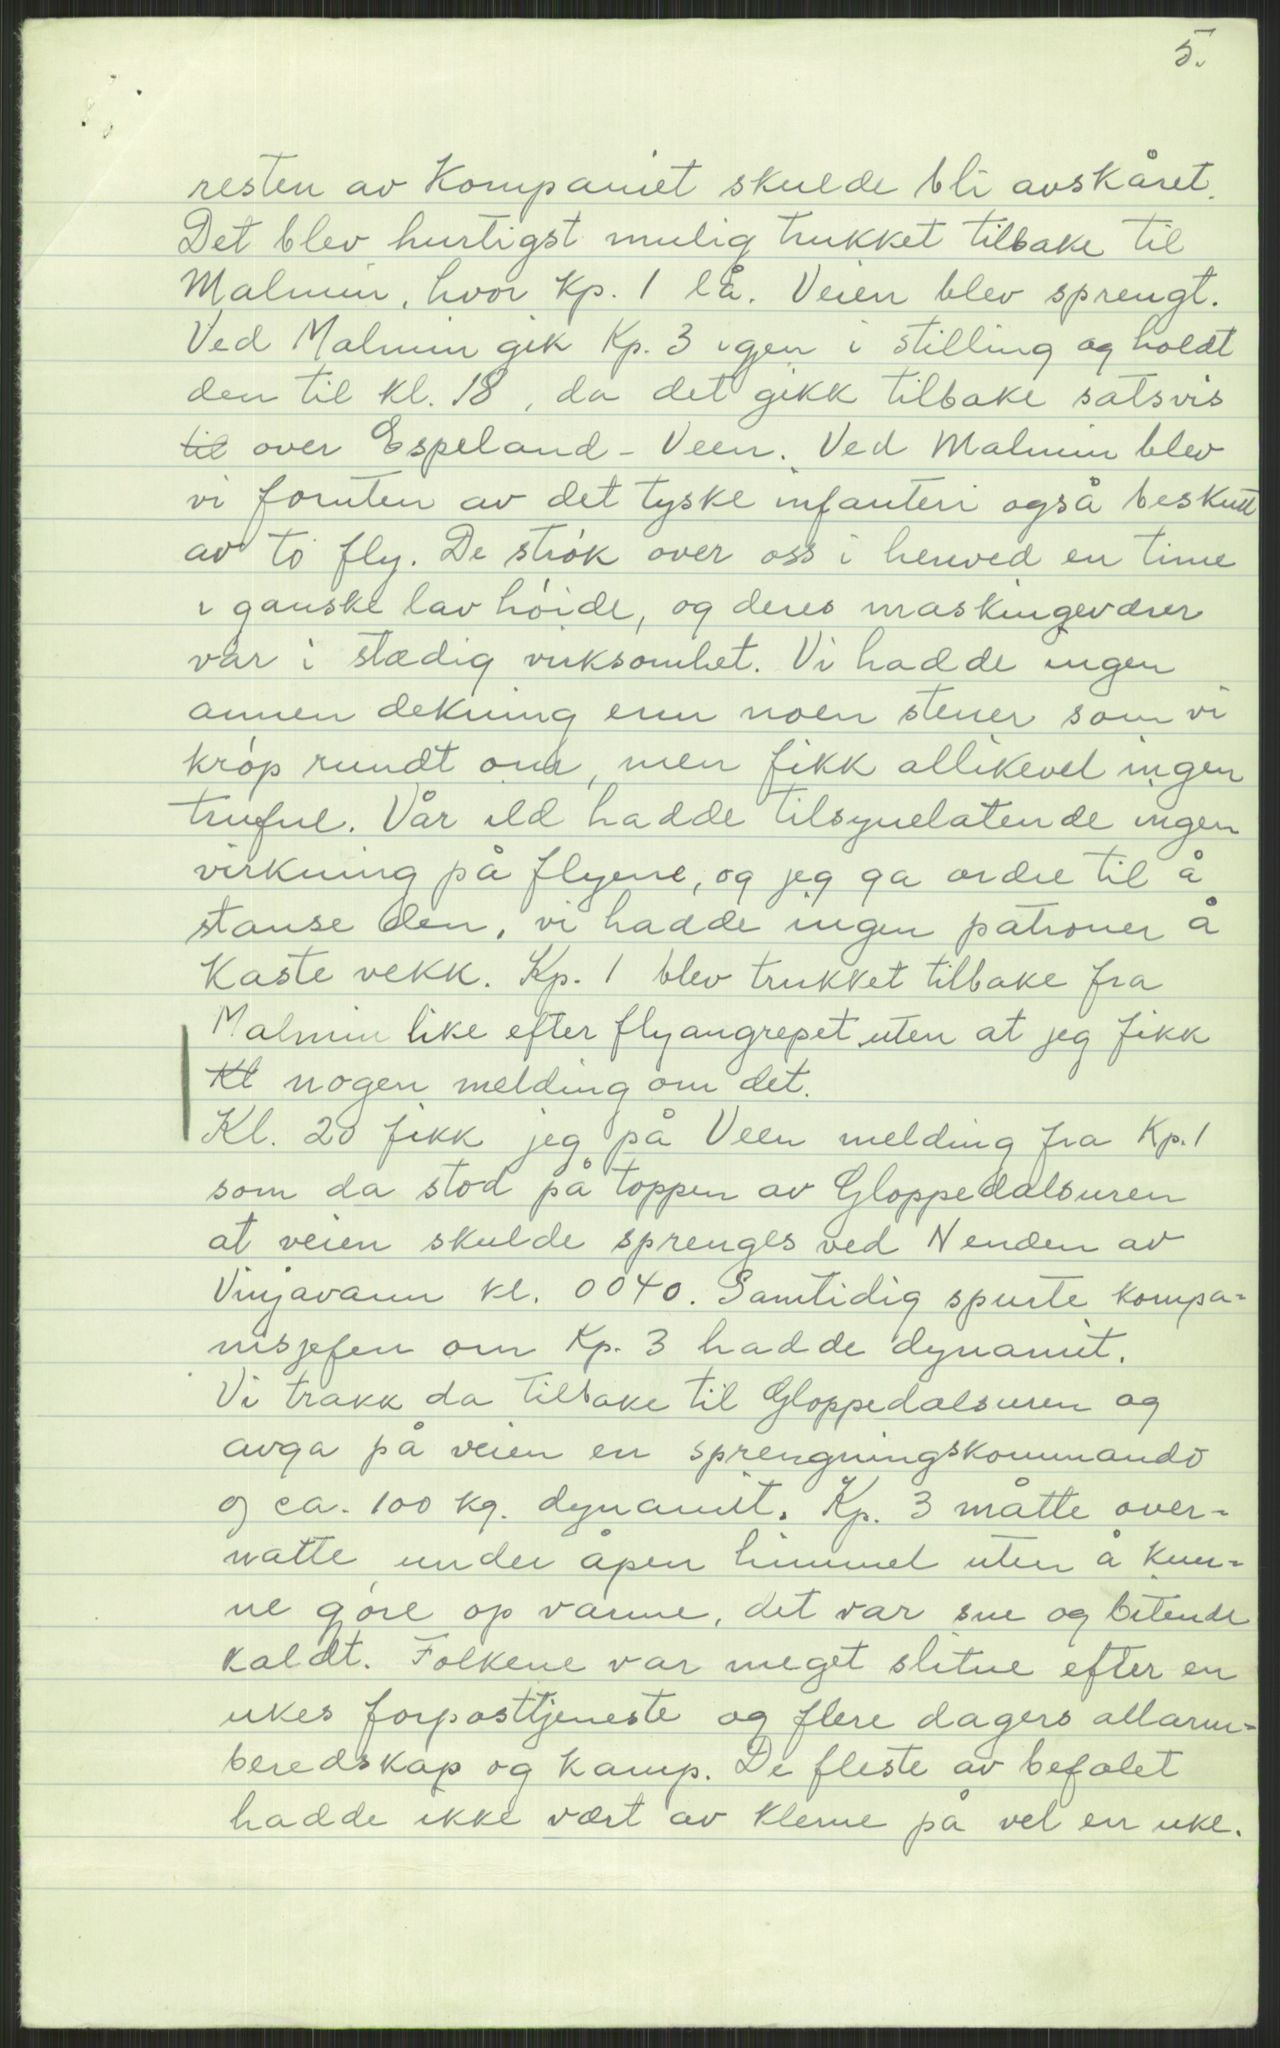 5.
resten av Kompaniet skulde bli avskåret.
Det blev hurtigst mulig trukket tilbake til
Malmin, hvor Kp. 1 lå. Veien blev sprengt.
Ved Malmin gik Kp. 3 igjen i stilling og holdt
den til kl. 18, da det gikk tilbake satsvis
til over Espeland - Veen. Ved Malmin blev
vi foruten av det tyske infanteri også beskutt
av to fly. De strøk over oss i henved en time
i ganske lav høide, og deres maskingeværer
var i stædig virksomhet. Vi hadde ingen
annen dekning enn noen stener som vi
krøp rundt om, men fikk allikevel ingen
truful. Vår ild hadde tilsynelatende ingen
virkning på flyene, og jeg ga ordre til å
stanse den, vi hadde ingen patroner å
kaste vekk. Kp. 1 blev trukket tilbake fra
Malmin like efter flyangrepet uten at jeg fikk
Kl nogen melding om det.
Kl. 20 fikk jeg på Veen melding fra Kp. 1
som da stod på toppen av Gloppedalsuren
at veien skulde sprenges ved N enden av
Vinjavann kl. 0040. Samtidig spurte kompa-
nisjefen om Kp. 3 hadde dynamit.
Vi trakk da tilbake til Gloppedalsuren og
avga på veien en sprengningskommando
og ca. 100 kg. dynamit. Kp. 3 måtte over-
natte under åpen himmel uten å kun-
ne gøre op varme, det var sne og bitende
kaldt. Folkene var meget slitne efter en
ukes forposttjeneste og flere dagers allarm-
beredskap og kamp. De fleste av befalet
hadde ikke vært av klerne på vel en uke.